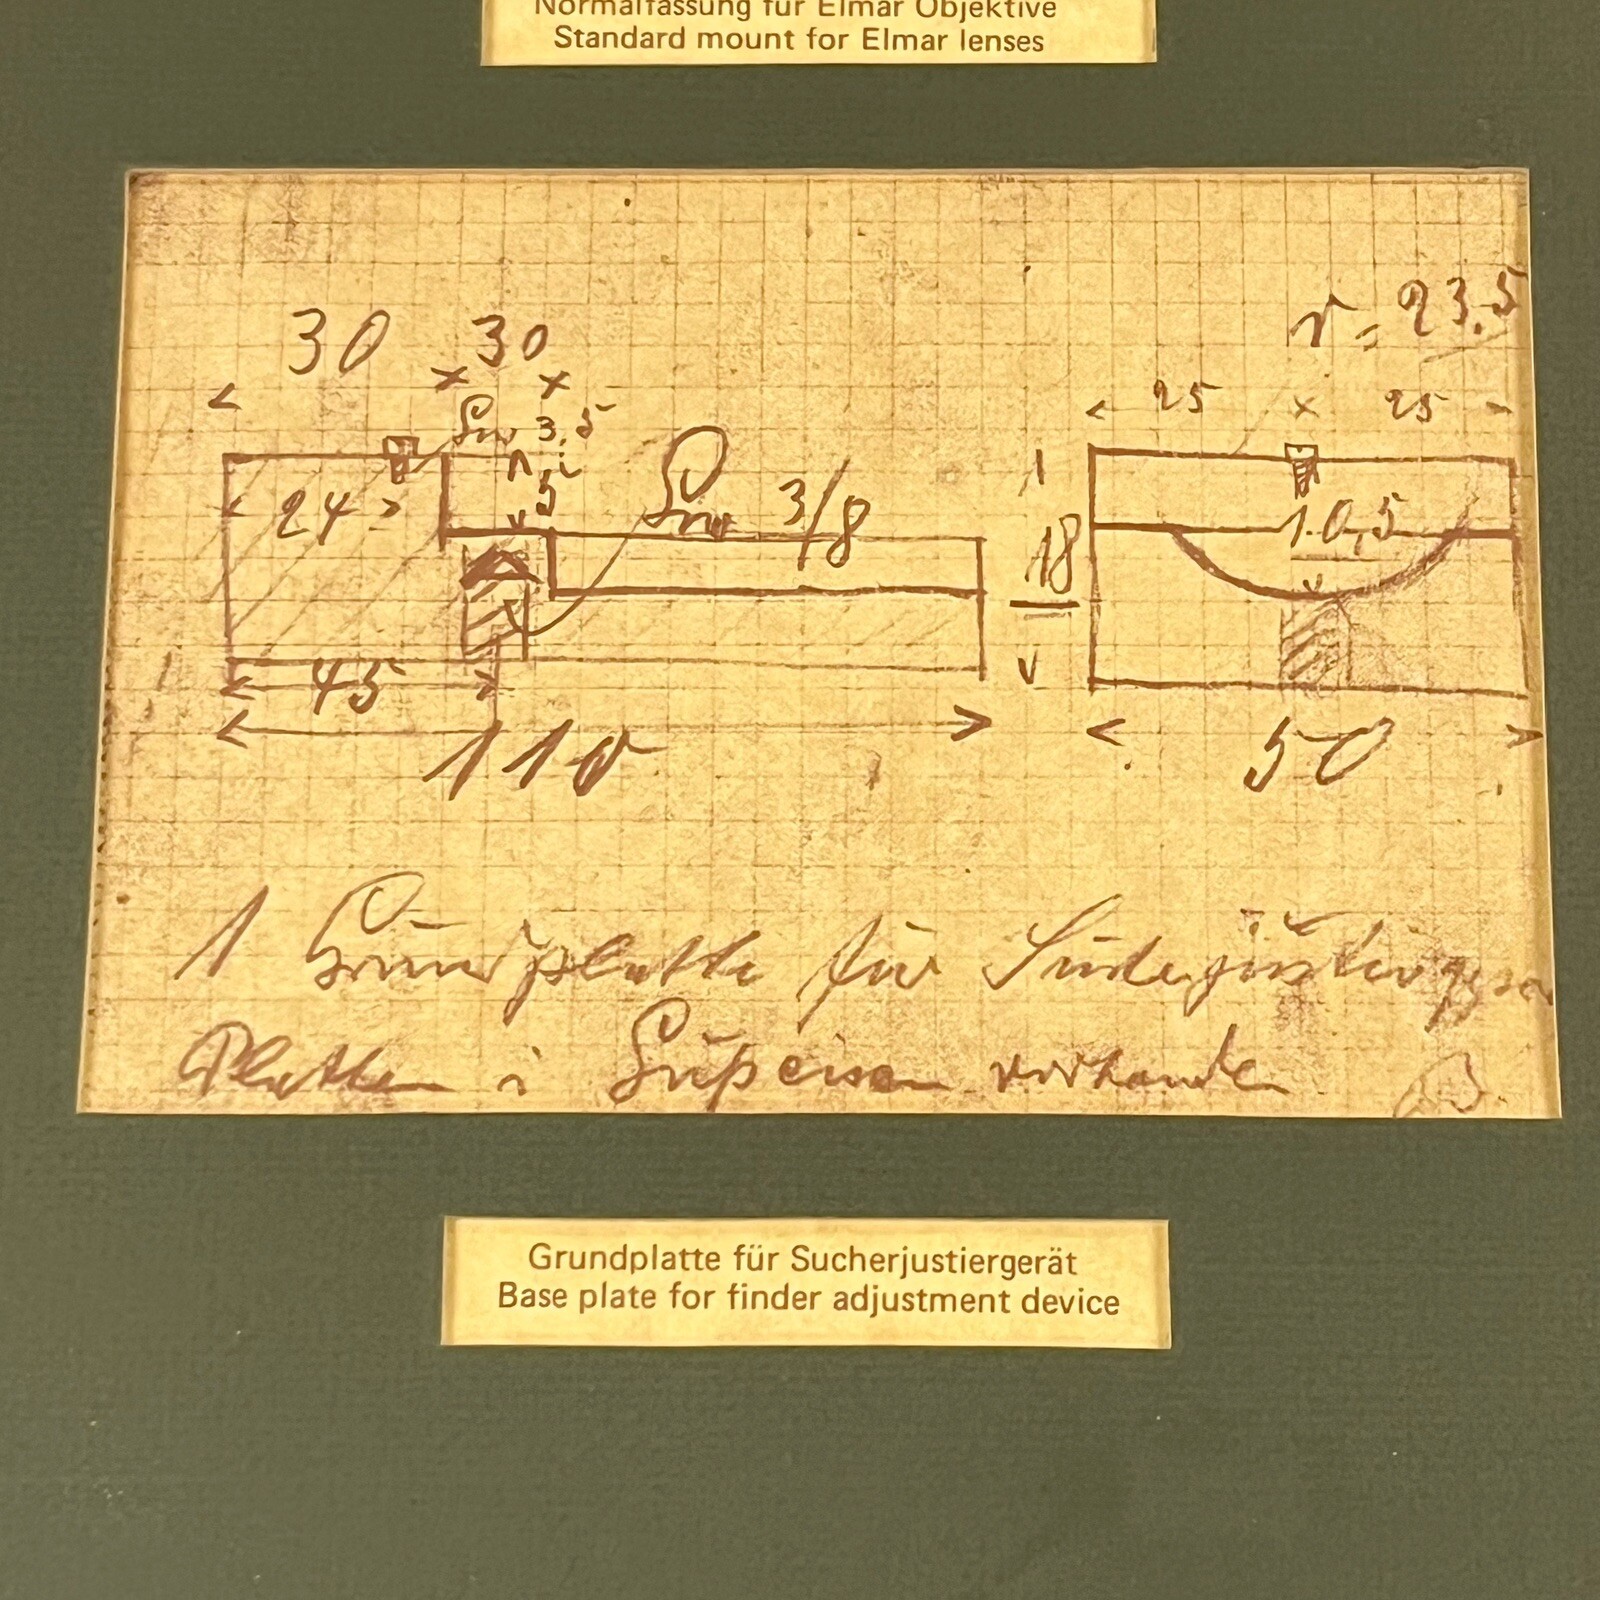 Normalfassung für Elmar Objektive
Standard mount for Elmar lenses
r = 23,5
30 30
25 25
Gew 3,5
24 5 Gew 3/8
18 10,5
45
110 50
1 Grundplatte für Sucherjustierger
Platten i Gußeisen vorhanden B.
Grundplatte für Sucherjustiergerät
Base plate for finder adjustment device